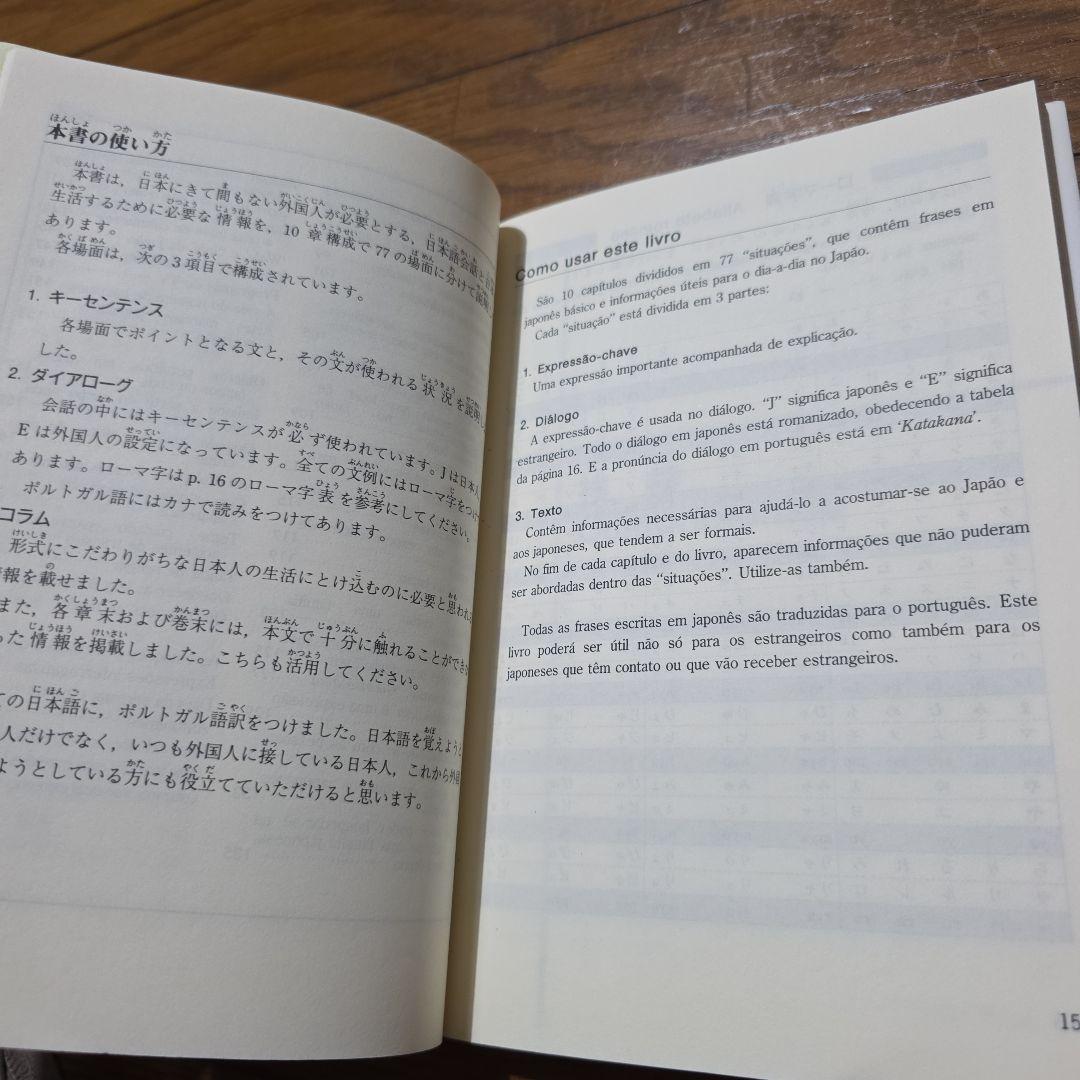 本書の使い方
本書は，日本にきて間もない外国人が必要とする，日本語会話と
生活するために必要な情報を，10章構成で77の場面に分けて
あります。
各場面は，次の3項目で構成されています。
1. キーセンテンス
各場面でポイントとなる文と，その文が使われる状況を説明し
した。
2. ダイアローグ
会話の中にはキーセンテンスが必ず使われています。Jは日本人
Eは外国人の設定になっています。全ての文例にはローマ字をつけ
あります。ローマ字はp. 16のローマ字表を参考にしてください。
ポルトガル語にはカナで読みをつけてあります。
コラム
形式にこだわりがちな日本人の生活にとけ込むのに必要と思われ
情報を載せました。
また，各章末および巻末には，本文で十分に触れることができ
った情報を掲載しました。こちらも活用してください。
ての日本語に，ポルトガル語訳をつけました。日本語を覚えよう
人だけでなく，いつも外国人に接している日本人，これから外
ようとしている方にも役立てていただけると思います。
Como usar este livro
São 10 capítulos divididos em 77 “situações”, que contêm frases em
japonês básico e informações úteis para o dia-a-dia no Japão.
Cada “situação” está dividida em 3 partes:
1. Expressão-chave
Uma expressão importante acompanhada de explicação.
2. Diálogo
A expressão-chave é usada no diálogo. “J” significa japonês e “E” significa
estrangeiro. Todo o diálogo em japonês está romanizado, obedecendo a tabela
da página 16. E a pronúncia do diálogo em português está em ‘Katakana’.
3. Texto
Contêm informações necessárias para ajudá-lo a acostumar-se ao Japão e
aos japoneses, que tendem a ser formais.
No fim de cada capítulo e do livro, aparecem informações que não puderam
ser abordadas dentro das “situações”. Utilize-as também.
Todas as frases escritas em japonês são traduzidas para o português. Este
livro poderá ser útil não só para os estrangeiros como também para os
japoneses que têm contato ou que vão receber estrangeiros.
15